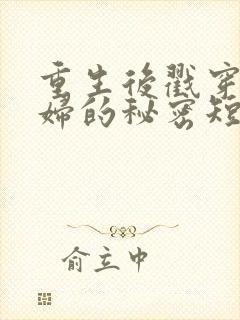 重生後戳穿
婦的秘密短
俞立中